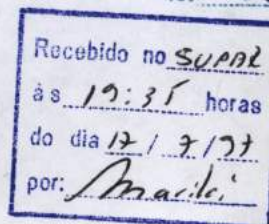 Recebido no SUPAR
às 19:35 horas
do dia 17 / 7 / 97
por: